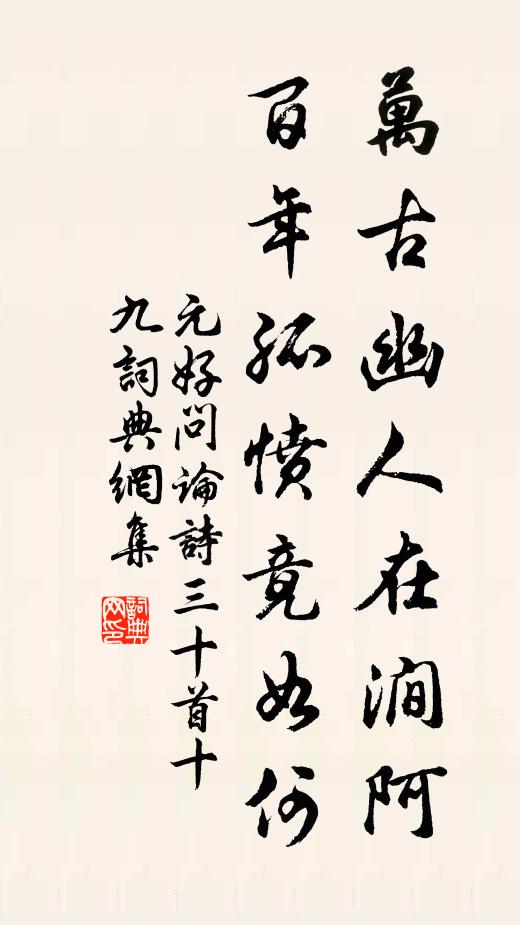 萬古幽人在澗阿
百年孤憤竟如何
元好問論詩三十首十
九詞典網集
詞典
网印